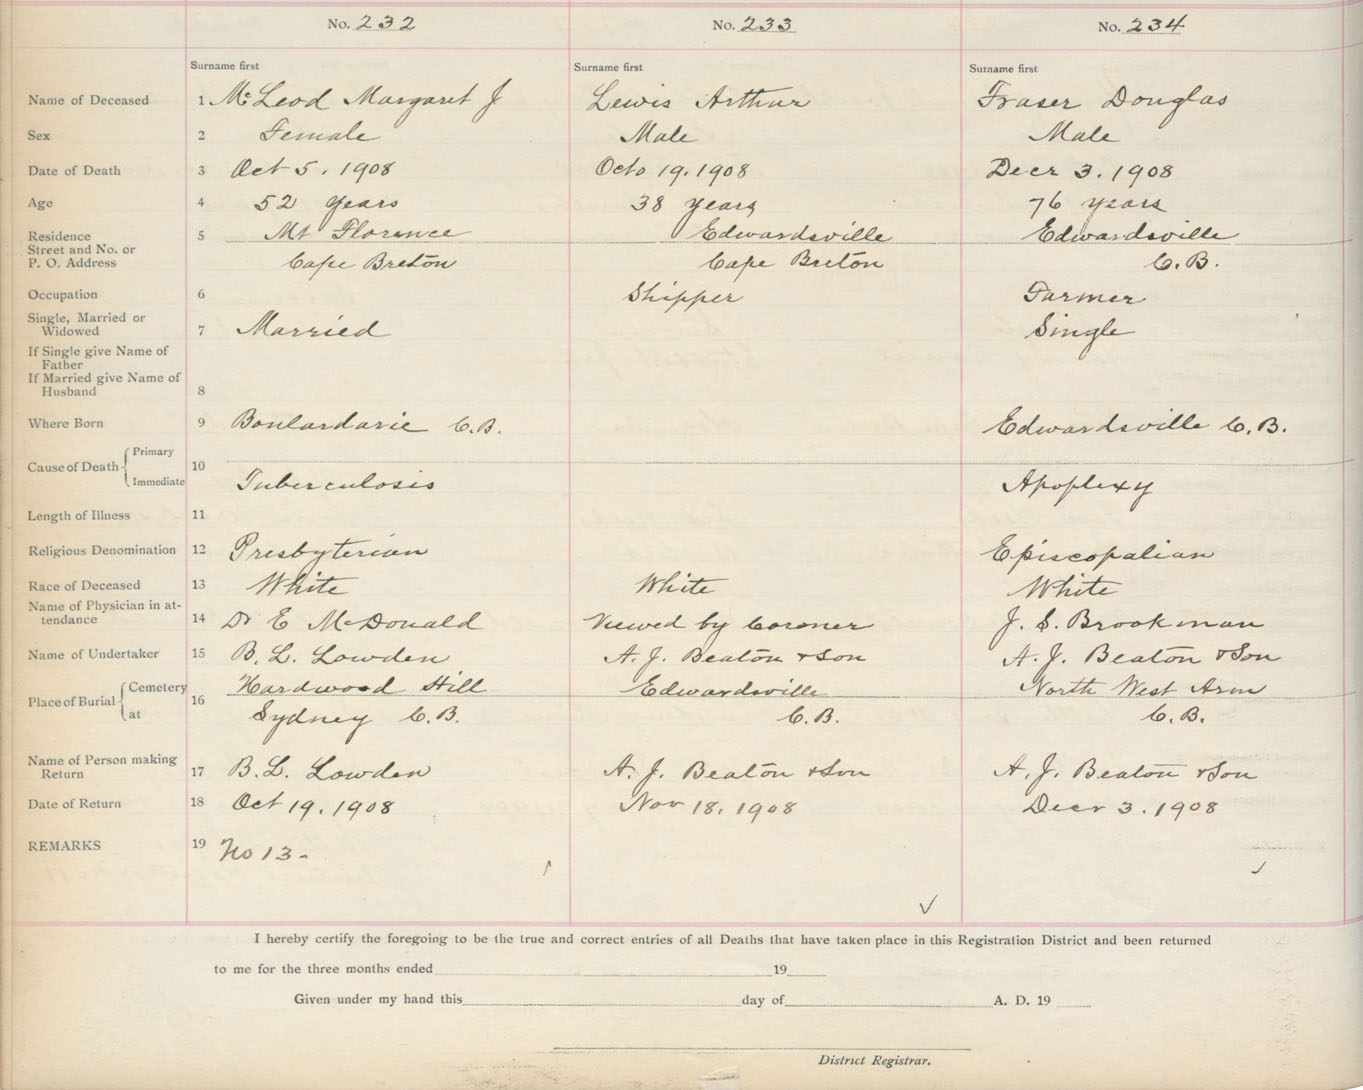 No. 232 No. 233 No. 234
Surname first Surname first Surname first
Name of Deceased 1 McLeod Margaret J Lewis Arthur Fraser Douglas
Sex 2 Female Male Male
Date of Death 3 Oct 5. 1908 Octo 19. 1908 Decr 3. 1908
Age 4 52 years 38 years 76 years
Residence 5 Mt Florence Edwardsville Edwardsville
Street and No. or
P. O. Address Cape Breton Cape Breton C. B.
Occupation 6 Shipper Farmer
Single, Married or
Widowed 7 Married Single
If Single give Name of
Father
If Married give Name of
Husband 8
Where Born 9 Boulardarie C. B. Edwardsville C. B.
Primary
Cause of Death 10
Immediate Tuberculosis Apoplexy
Length of Illness 11
Religious Denomination 12 Presbyterian Episcopalian
Race of Deceased 13 White White White
Name of Physician in at-
tendance 14 Dr E McDonald Viewed by Coroner J. S. Brookman
Name of Undertaker 15 B. L. Lowden A. J. Beaton & Son A. J. Beaton & Son
Cemetery Hardwood Hill Edwardsville North West Arm
Place of Burial 16
at Sydney C. B. C. B. C. B.
Name of Person making
Return 17 B. L. Lowden A. J. Beaton & Son A. J. Beaton & Son
Date of Return 18 Oct 19. 1908 Nov 18. 1908 Decr 3. 1908
REMARKS 19 No 13 -
I hereby certify the foregoing to be the true and correct entries of all Deaths that have taken place in this Registration District and been returned
to me for the three months ended 19
Given under my hand this day of A. D. 19
District Registrar.